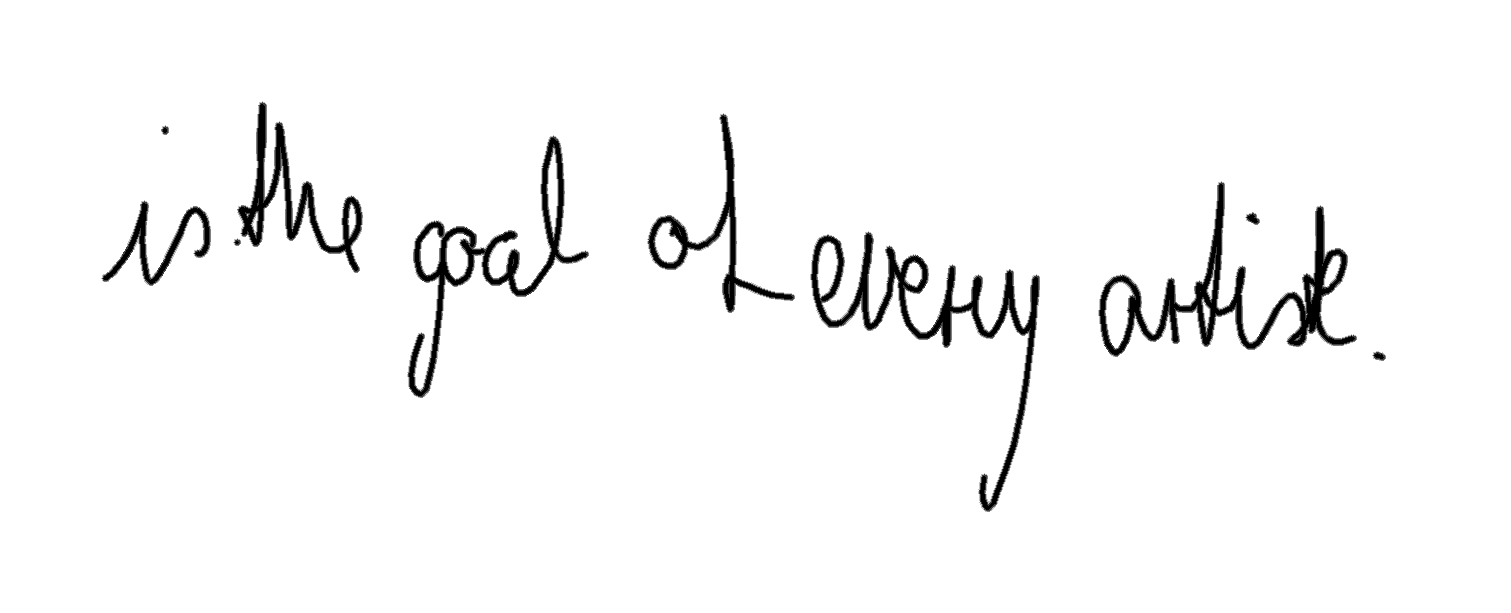 is the goal of every artist.